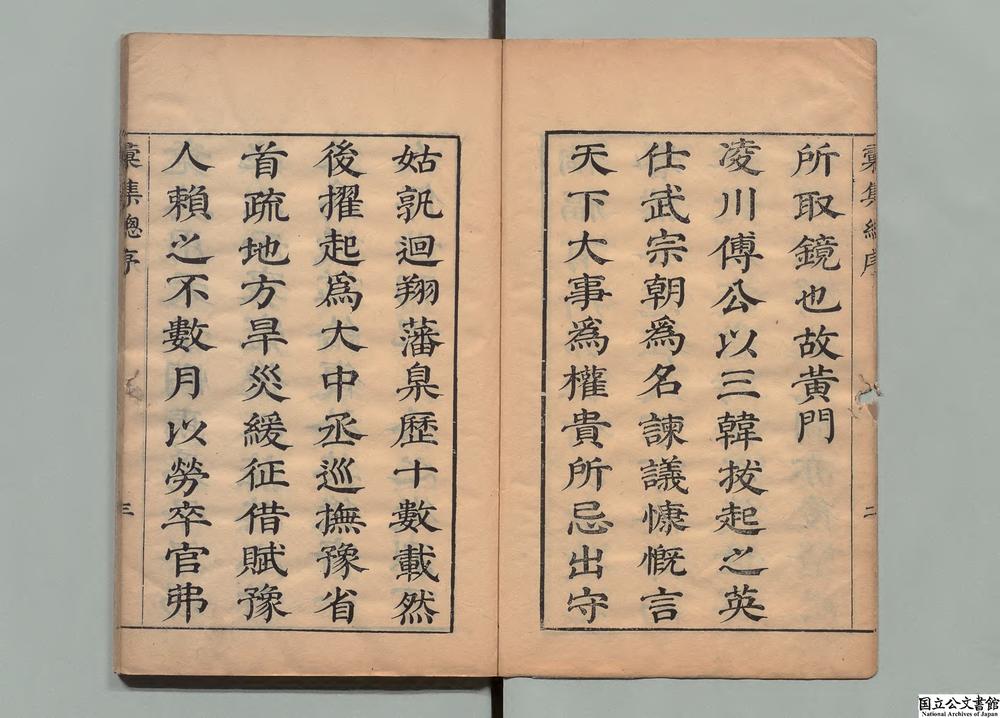 所取鏡也故黄門
凌川傅公以三韓拔起之英
仕武宗朝爲名諫議慷慨言
天下大事爲權貴所忌出守
姑孰迴翔藩臬歷十數載然
後擢起爲大中丞巡撫豫省
首疏地方旱災緩征借賦豫
人賴之不數月以勞卒官弗
彙集總序
二
彙集總序
三
国立公文書館
National Archives of Japan